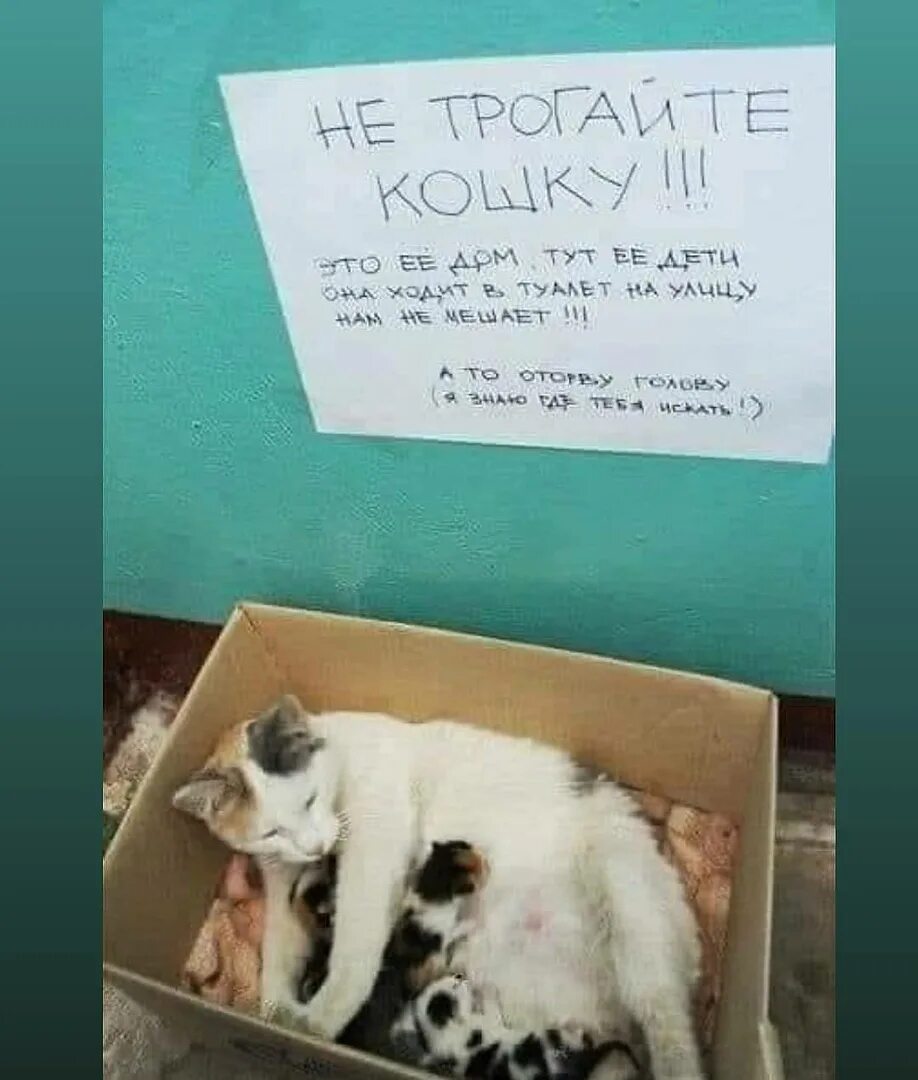 НЕ ТРОГАЙТЕ
КОШКУ !!!
ЭТО ЕЁ ДОМ. ТУТ ЕЁ ДЕТИ
ОНА ХОДИТ В ТУАЛЕТ НА УЛИЦУ
НАМ НЕ МЕШАЕТ !!!
А ТО ОТОРВУ ГОЛОВУ
(Я ЗНАЮ ГДЕ ТЕБЯ ИСКАТЬ!)